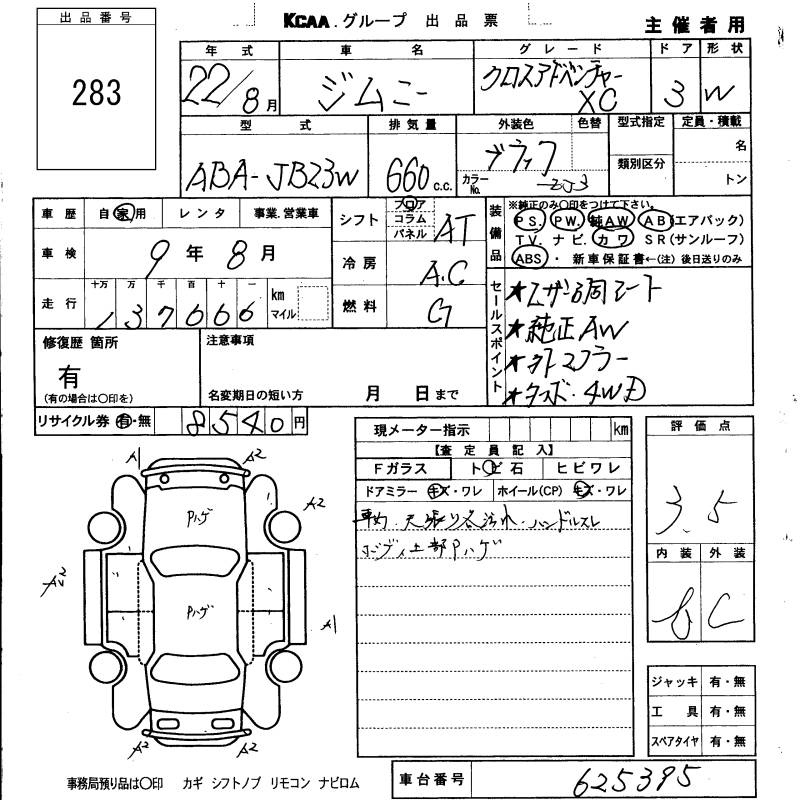 出品番号
KCAA.グループ 出品票
主催者用
283
年式 車名 グレード ドア 形状
22/8月 ジムニー クロスアドベンチャー XC 3 W
型式 排気量 外装色 色替 型式指定 定員・積載
ABA-JB23W 660 c.c. ブラック
カラーNo. ZJ3
類別区分
名
トン
車歴 自家用 レンタ 事業.営業車
シフト フロア コラム パネル AT
装備品
※純正のみ○印をつけて下さい。
PS. PW. 純AW ABS(エアバック)
TV. ナビ. カワ SR(サンルーフ)
ABS ・ 新車保証書←(注)後日送りのみ
車検 9年 8月
冷房 A.C
走行 十万 万 千 百 十 一
137666 km マイル
燃料 G
セールスポイント
★純正AW
★ターボ・4WD
修復歴 箇所
有
(有の場合は○印を)
注意事項
名変期日の短い方 月 日まで
リサイクル券 有・無 8540円
現メーター指示 km
【査定員記入】
Fガラス トビ石 ヒビワレ
ドアミラー キズ・ワレ ホイール(CP) キズ・ワレ
車内 天張り各汚れ・ハンドルスレ
ボディ上部Pハゲ
評価点
3.5
内装 外装
C
A1 A2
A2
Pハゲ
Pハゲ
A1
A2 A2
ジャッキ 有・無
工具 有・無
スペアタイヤ 有・無
事務局預り品は○印 カギ シフトノブ リモコン ナビロム
車台番号 625395